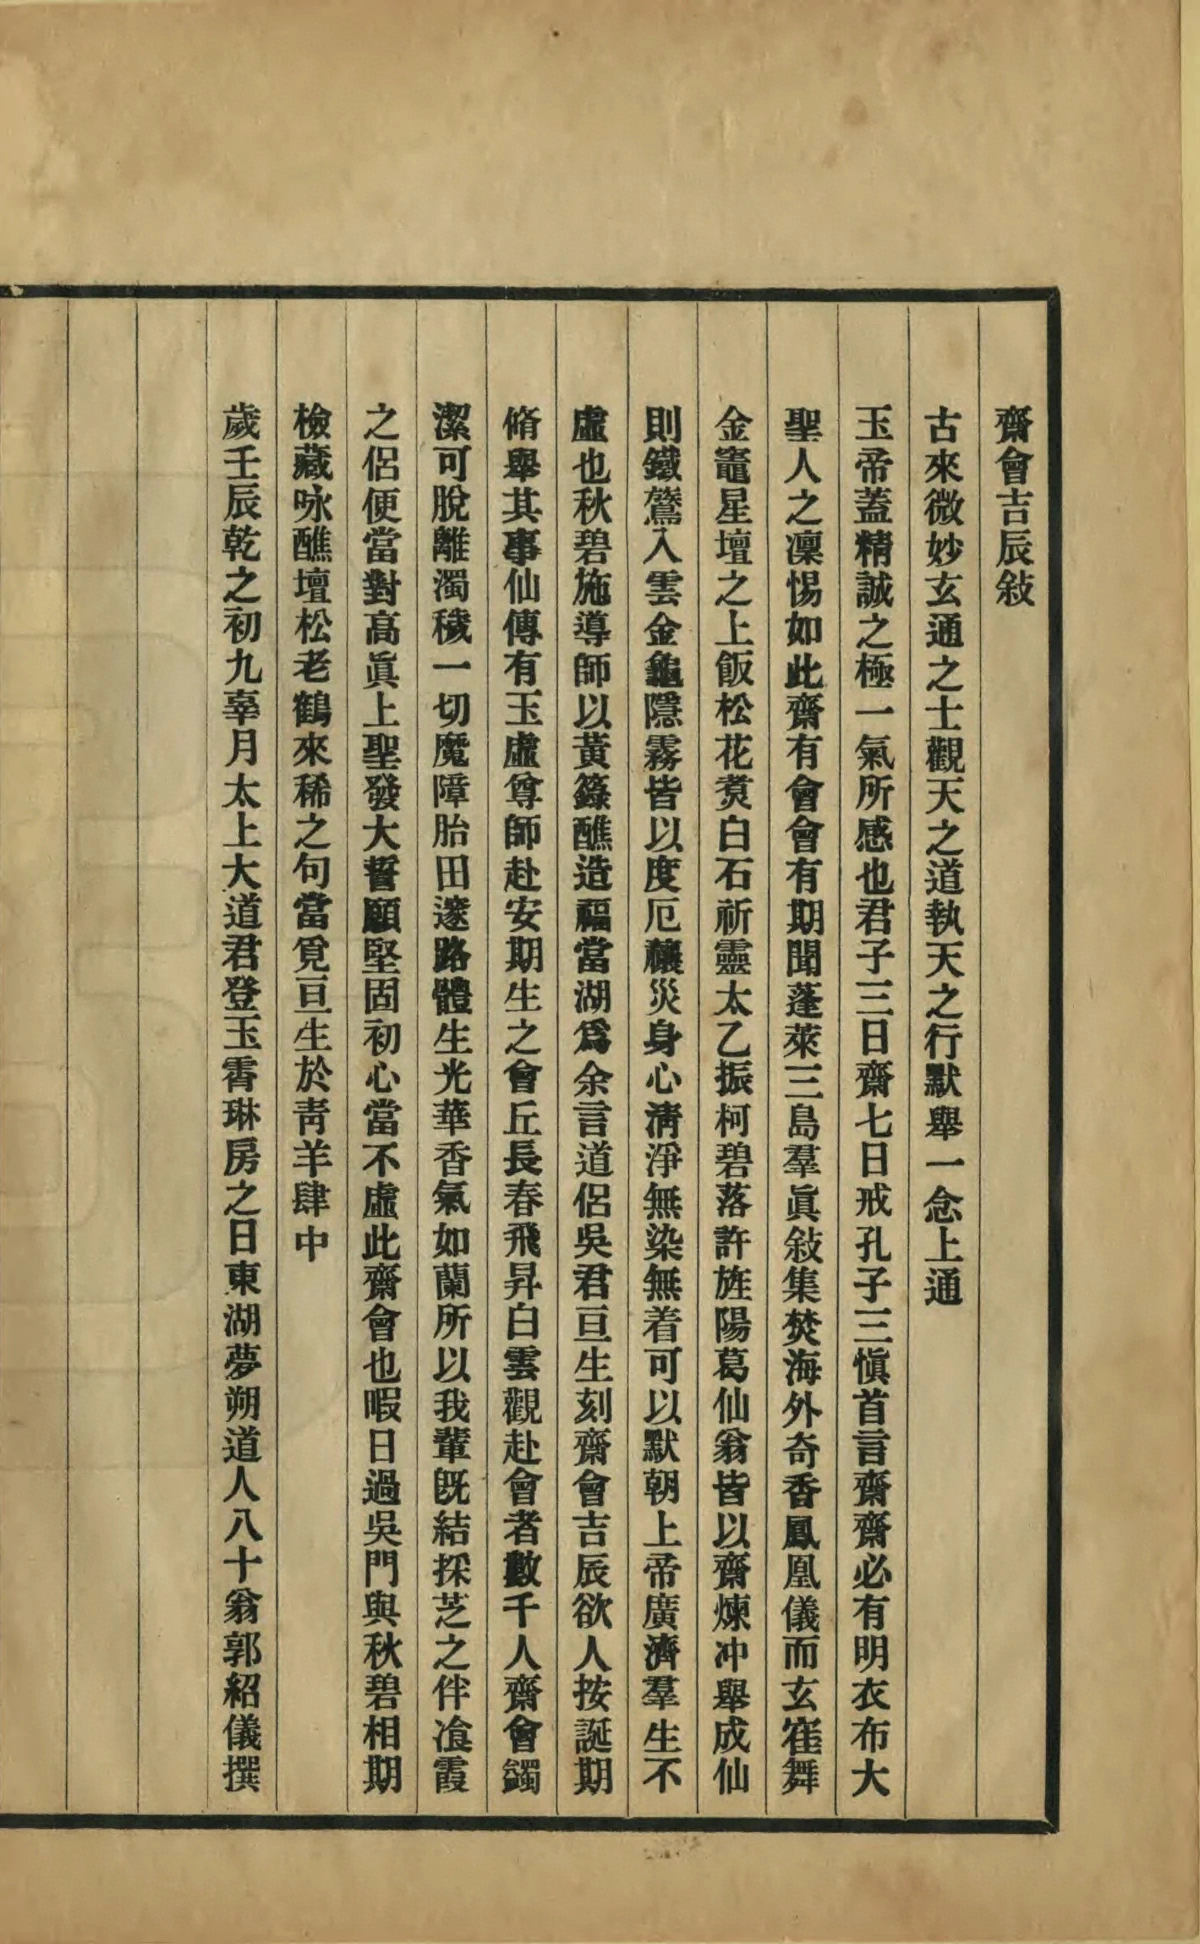 齋會吉辰敍
古來微妙玄通之士觀天之道執天之行默舉一念上通
玉帝蓋精誠之極一氣所感也君子三日齋七日戒孔子三愼首言齋齋必有明衣布大
聖人之凜惕如此齋有會會有期聞蓬萊三島羣眞敍集焚海外奇香鳳凰儀而玄寉舞
金竈星壇之上飯松花煑白石祈靈太乙振柯碧落許旌陽葛仙翁皆以齋煉冲舉成仙
則鐵鷟入雲金龜隱霧皆以度厄禳災身心淸淨無染無着可以默朝上帝廣濟羣生不
虛也秋碧施導師以黃籙醮造福當湖爲余言道侶吳君亘生刻齋會吉辰欲人按誕期
脩舉其事仙傳有玉虛尊師赴安期生之會丘長春飛昇白雲觀赴會者數千人齋會蠲
潔可脫離濁穢一切魔障胎田邃路體生光華香氣如蘭所以我輩旣結採芝之伴飡霞
之侶便當對高眞上聖發大誓願堅固初心當不虛此齋會也暇日過吳門與秋碧相期
檢藏咏醮壇松老鶴來稀之句當覓亘生於靑羊肆中
歲壬辰乾之初九辜月太上大道君登玉霄琳房之日東湖夢朔道人八十翁郭紹儀撰